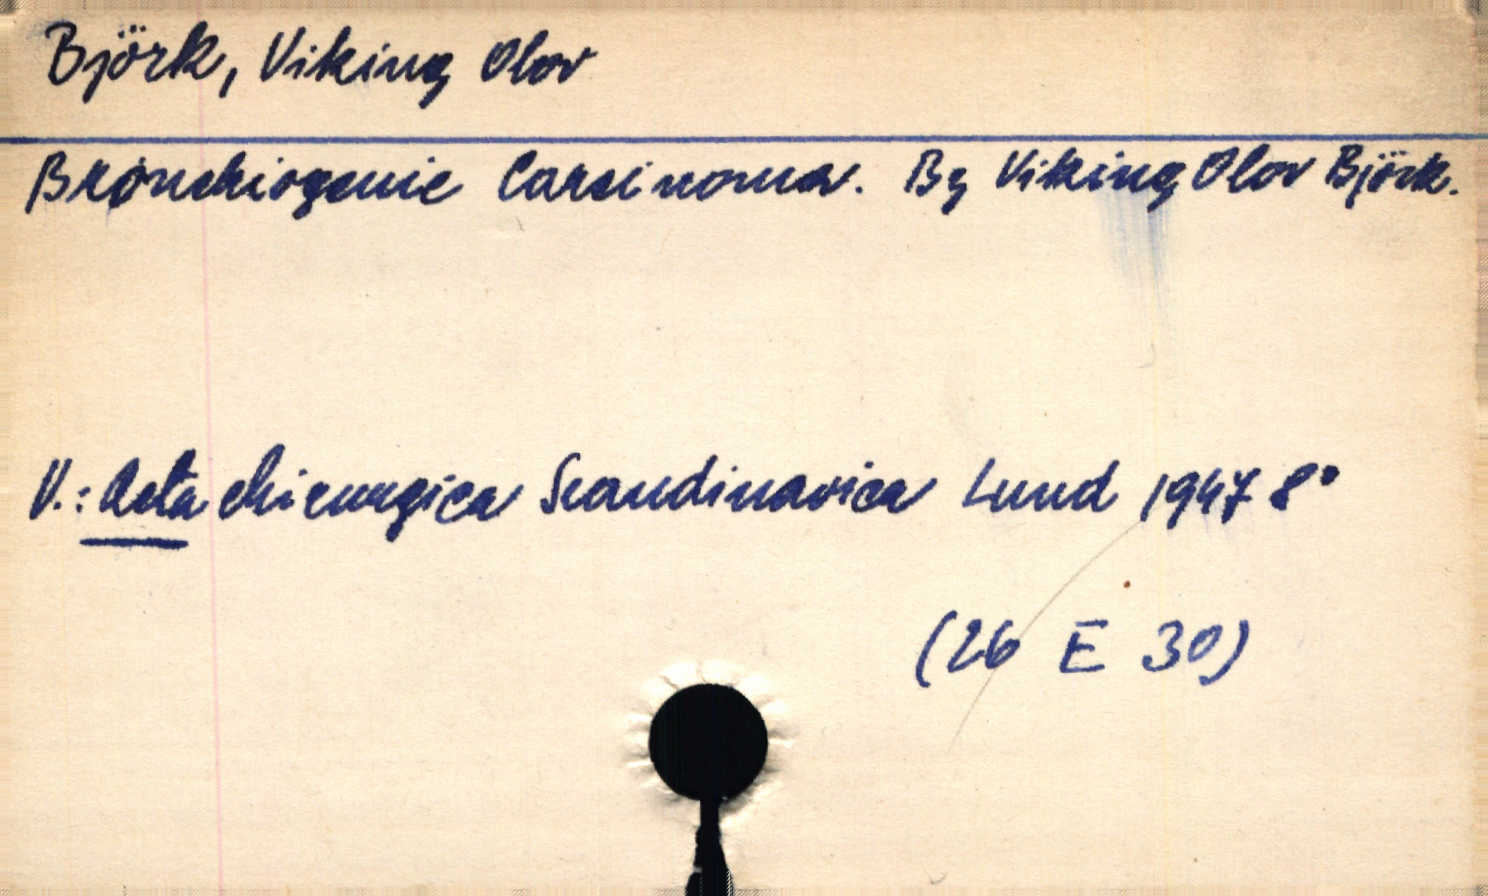 Björk, Viking Olov
Bronchiogenic Carsinoma. By Viking Olov Björk.
V.: Acta chirurgica Scandinavica Lund 1947 8°
(26 E 30)